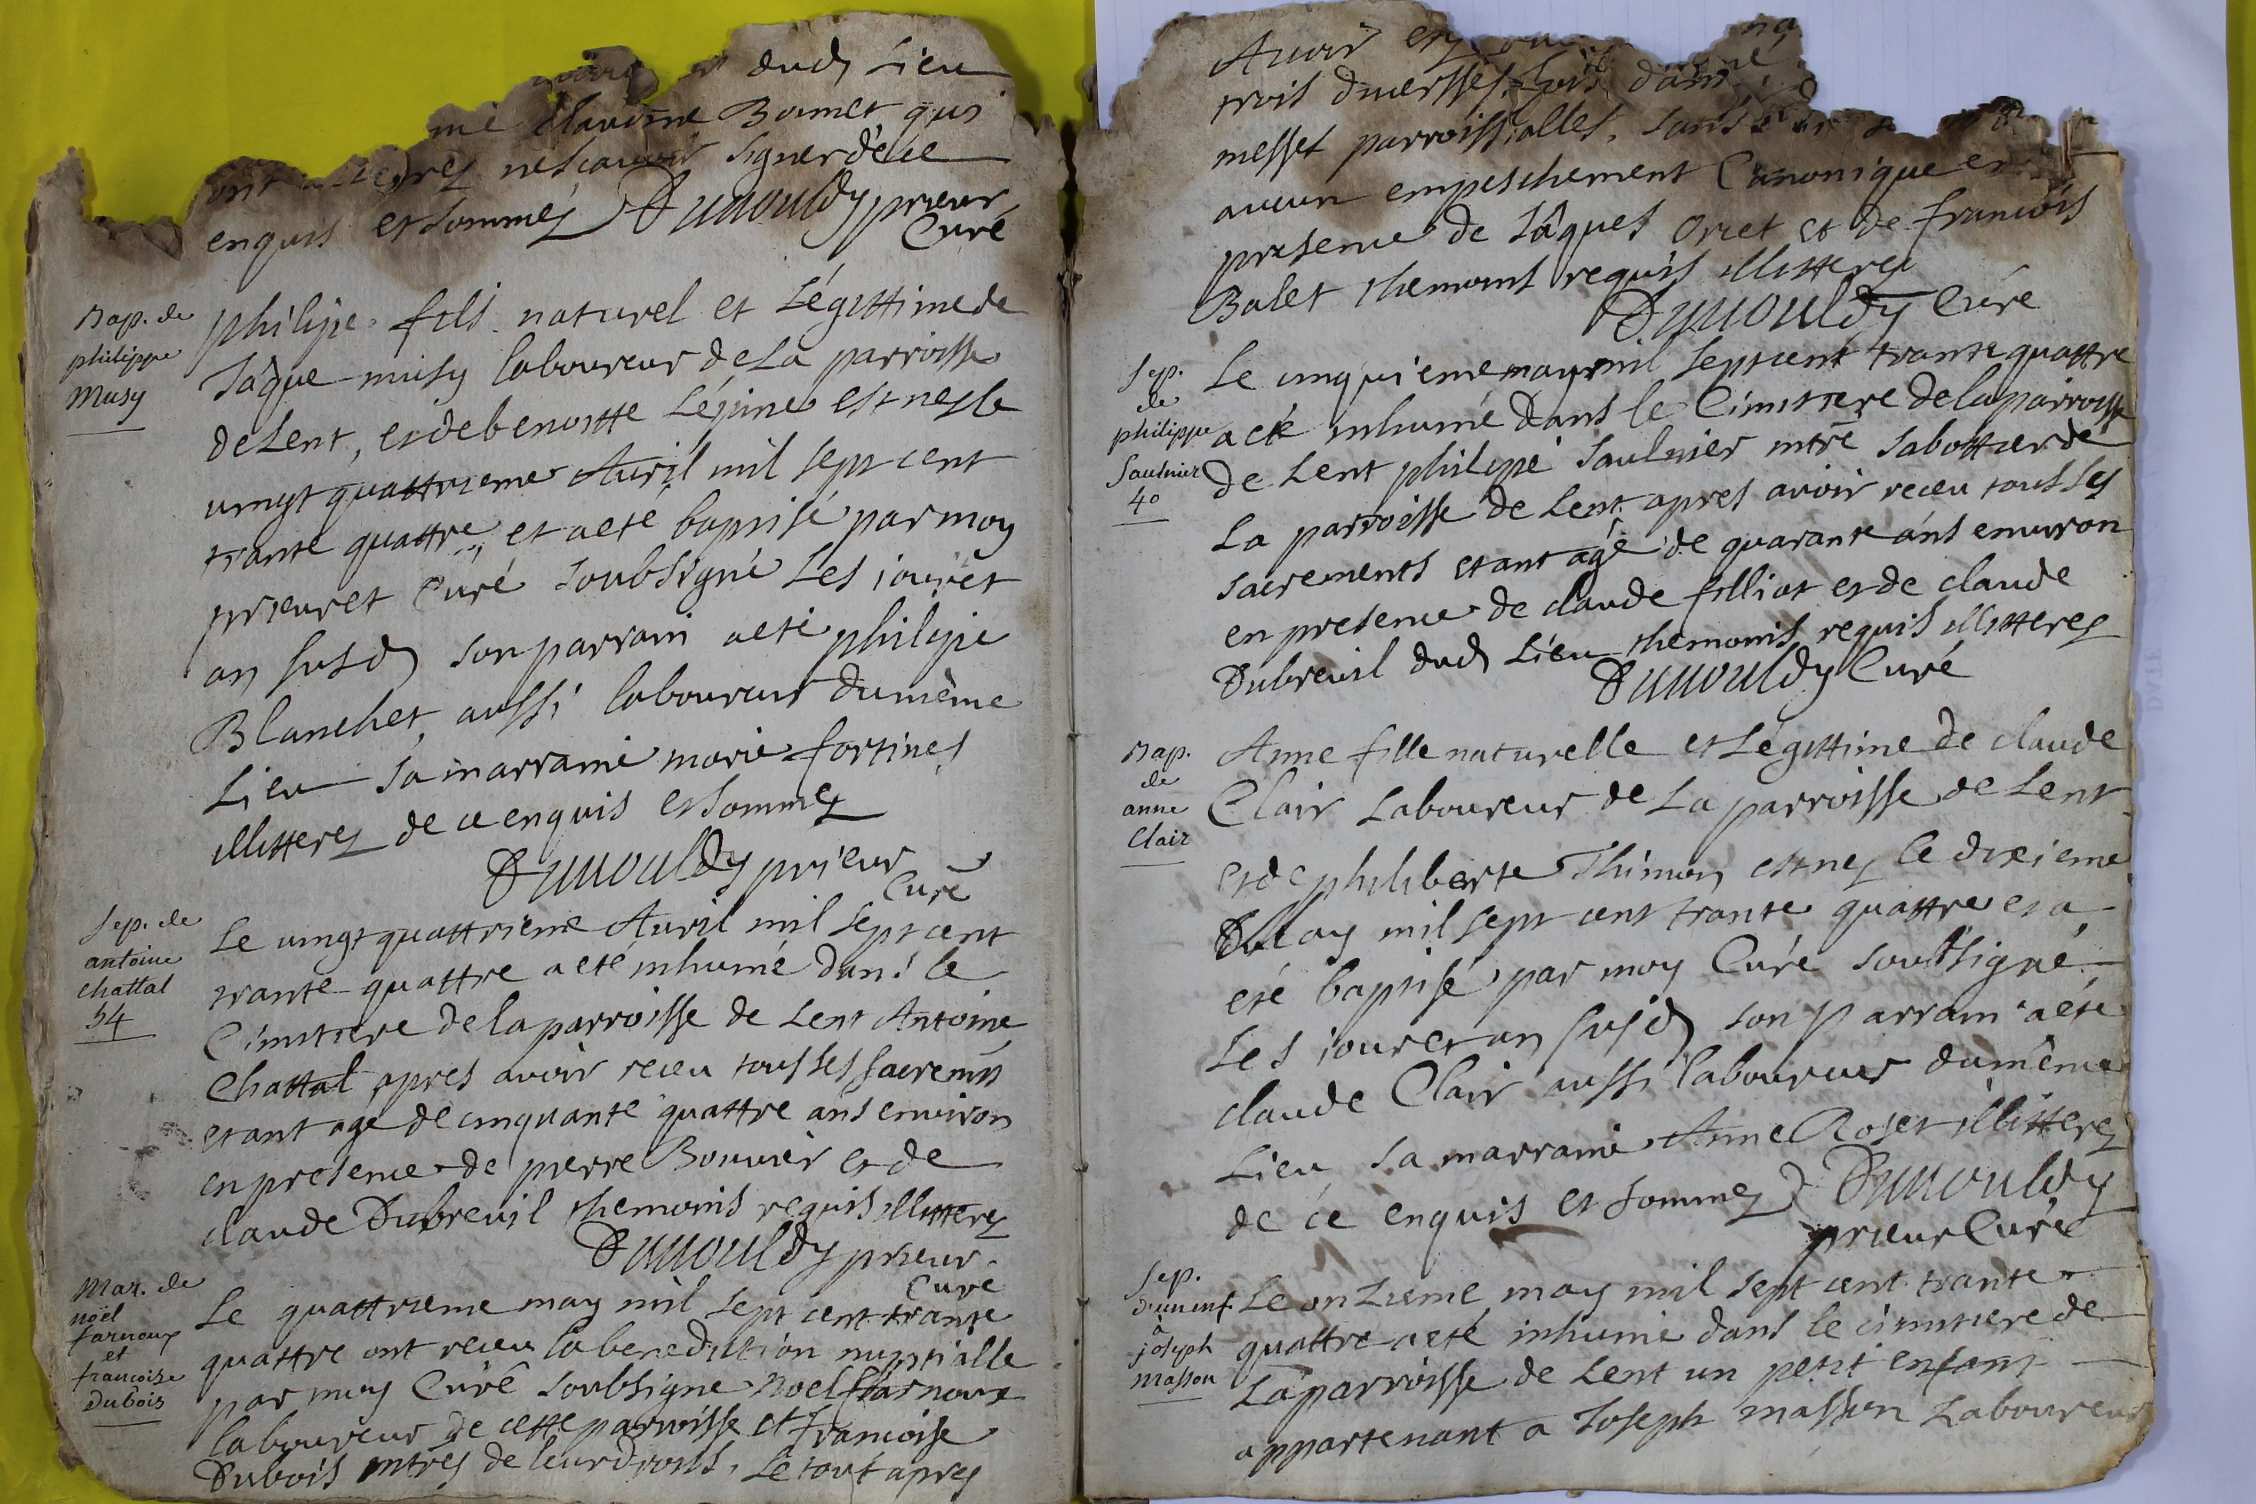 dud Lieu
Claudine Bonnet qui
ont illitterez nescavoir signer dece
enquis et sommez Dunouldy prieur
Curé
Bap. de
philippe
Musy
philipe fils naturel et Légittime de
Jâque musy laboureur de La parroisse
de Lent, et de benoitte Lépine est nez le
vingt quattrieme Avril mil sept cent
trante quattre, et a eté baptisé par moy
prieur et Curé soubsigné Les jour et
an susd son parrain a eté philipe
Blanchet aussi laboureur du même
Lieu sa marraine marie fortines
illitterez de ce enquis et sommez
Dunouldy prieur
Curé
Sep. de
antoine
chattal
54
Le vingt quattrieme Avril mil sept cent
trante quattre a eté inhumé dans le
Cimitiere de la parroisse de Lent Antoine
Chattal apres avoir receu tous ses sacremts
etant age de cinquante quattre ans environ
en presence de pierre Bouvier et de
claude Dubreuil themoins requis illitterez
Dunouldy prieur
Curé
Mar. de
noël
farnoux
et
francoise
Dubois
Le quattrieme may mil sept cent trante
quattre ont receu la benediction nuptialle
par moy Curé soubsigne Noel farnoux
laboureur de cette parroisse et francoise
Dubois mtres de leur Droits, Le tout apres
Avoir
trois diversses fois dans
messes parroissialles, sans
aucun empeschement Canonique et
presence de Jâques Oriet et de francois
Balet themoins requis illitterez
Dunouldy Curé
Sep.
de
philippe
Saulnier
40
Le cinquieme may mil sept cent trante quattre
a eté inhumé dans le Cimitiere de la parroisse
de Lent philipe Saulnier mtre sabottier de
La parroisse de Lent apres avoir receu tous ses
sacrements etant agé de quarante ans environ
en presence de claude filliat et de claude
Dubreuil dud Lieu themoins requis illitterez
Dunouldy Curé
Bap.
de
anne
Clair
Anne fille naturelle et Légittime de claude
Clair Laboureur de La parroisse de Lent
et de philiberte Thimon est nez le dixieme
May mil sept cent trante quattre et a
eté baptisé par moy Curé soubsigné
Les jour et an susd son parrain a eté
claude Clair aussi laboureur du même
Lieu sa marraine Anne Roset illitterez
de ce enquis et sommez Dunouldy
prieur Curé
Sep.
d'un enf.
à
joseph
Masson
Le onzieme may mil sept cent trante
quattre a eté inhumé dans le cimitiere de
La parroisse de Lent un petit enfant
appartenant a Joseph masson Laboureur